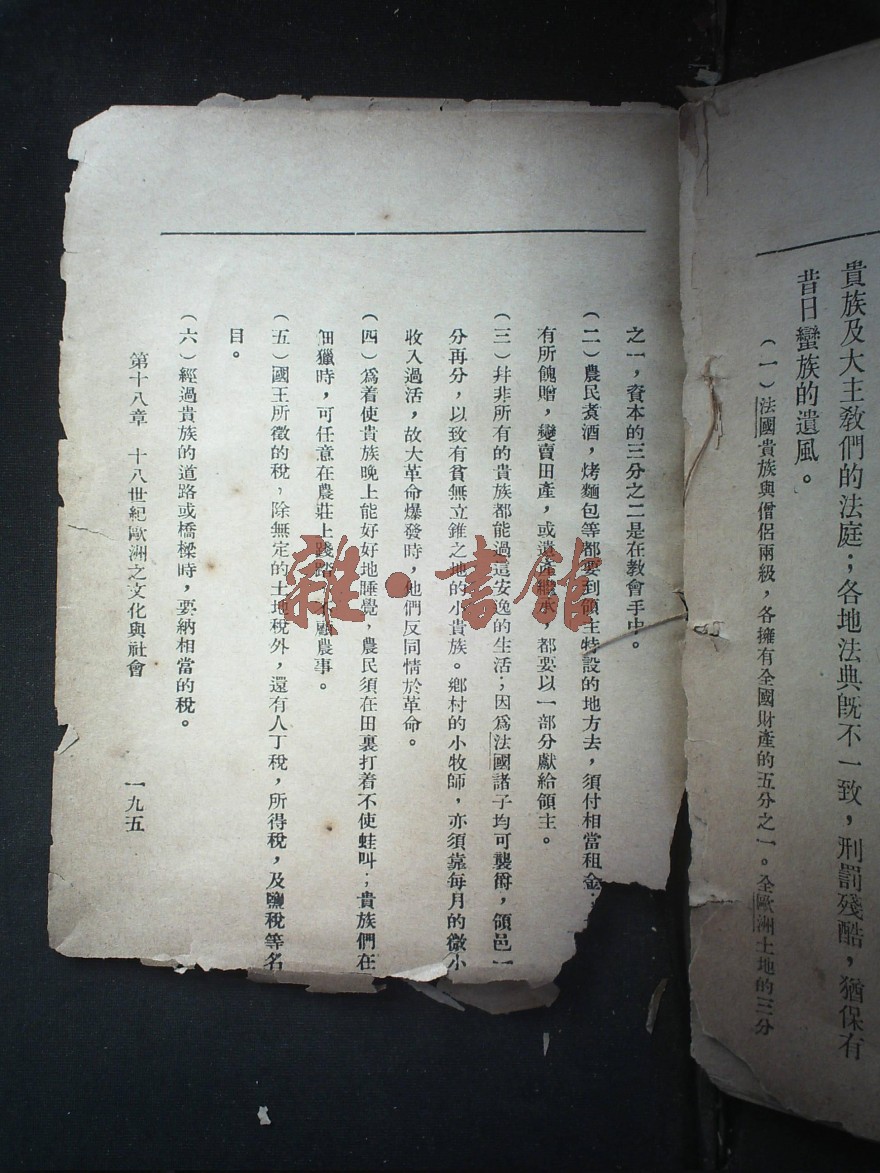 貴族及大主教們的法庭；各地法典既不一致，刑罰殘酷，猶保有
昔日蠻族的遺風。
（一）法國貴族與僧侶兩級，各擁有全國財產的五分之一。全歐洲土地的三分
之一，資本的三分之二是在教會手中。
（二）農民煑酒，烤麵包等都要到領主特設的地方去，須付相當租金
有所餽贈，變賣田產，或遺產繼承 都要以一部分獻給領主。
（三）幷非所有的貴族都能過這安逸的生活；因爲法國諸子均可襲爵，領邑一
分再分，以致有貧無立錐之地的小貴族。鄉村的小牧師，亦須靠每月的微小
收入過活，故大革命爆發時，他們反同情於革命。
（四）爲着使貴族晚上能好好地睡覺，農民須在田裏打着不使蛙叫；貴族們在
佃獵時，可任意在農莊上踐踏 不顧農事。
（五）國王所徵的稅，除無定的土地稅外，還有人丁稅，所得稅，及鹽稅等名
目。
（六）經過貴族的道路或橋樑時，要納相當的稅。
第十八章 十八世紀歐洲之文化與社會
一九五
雜·書館